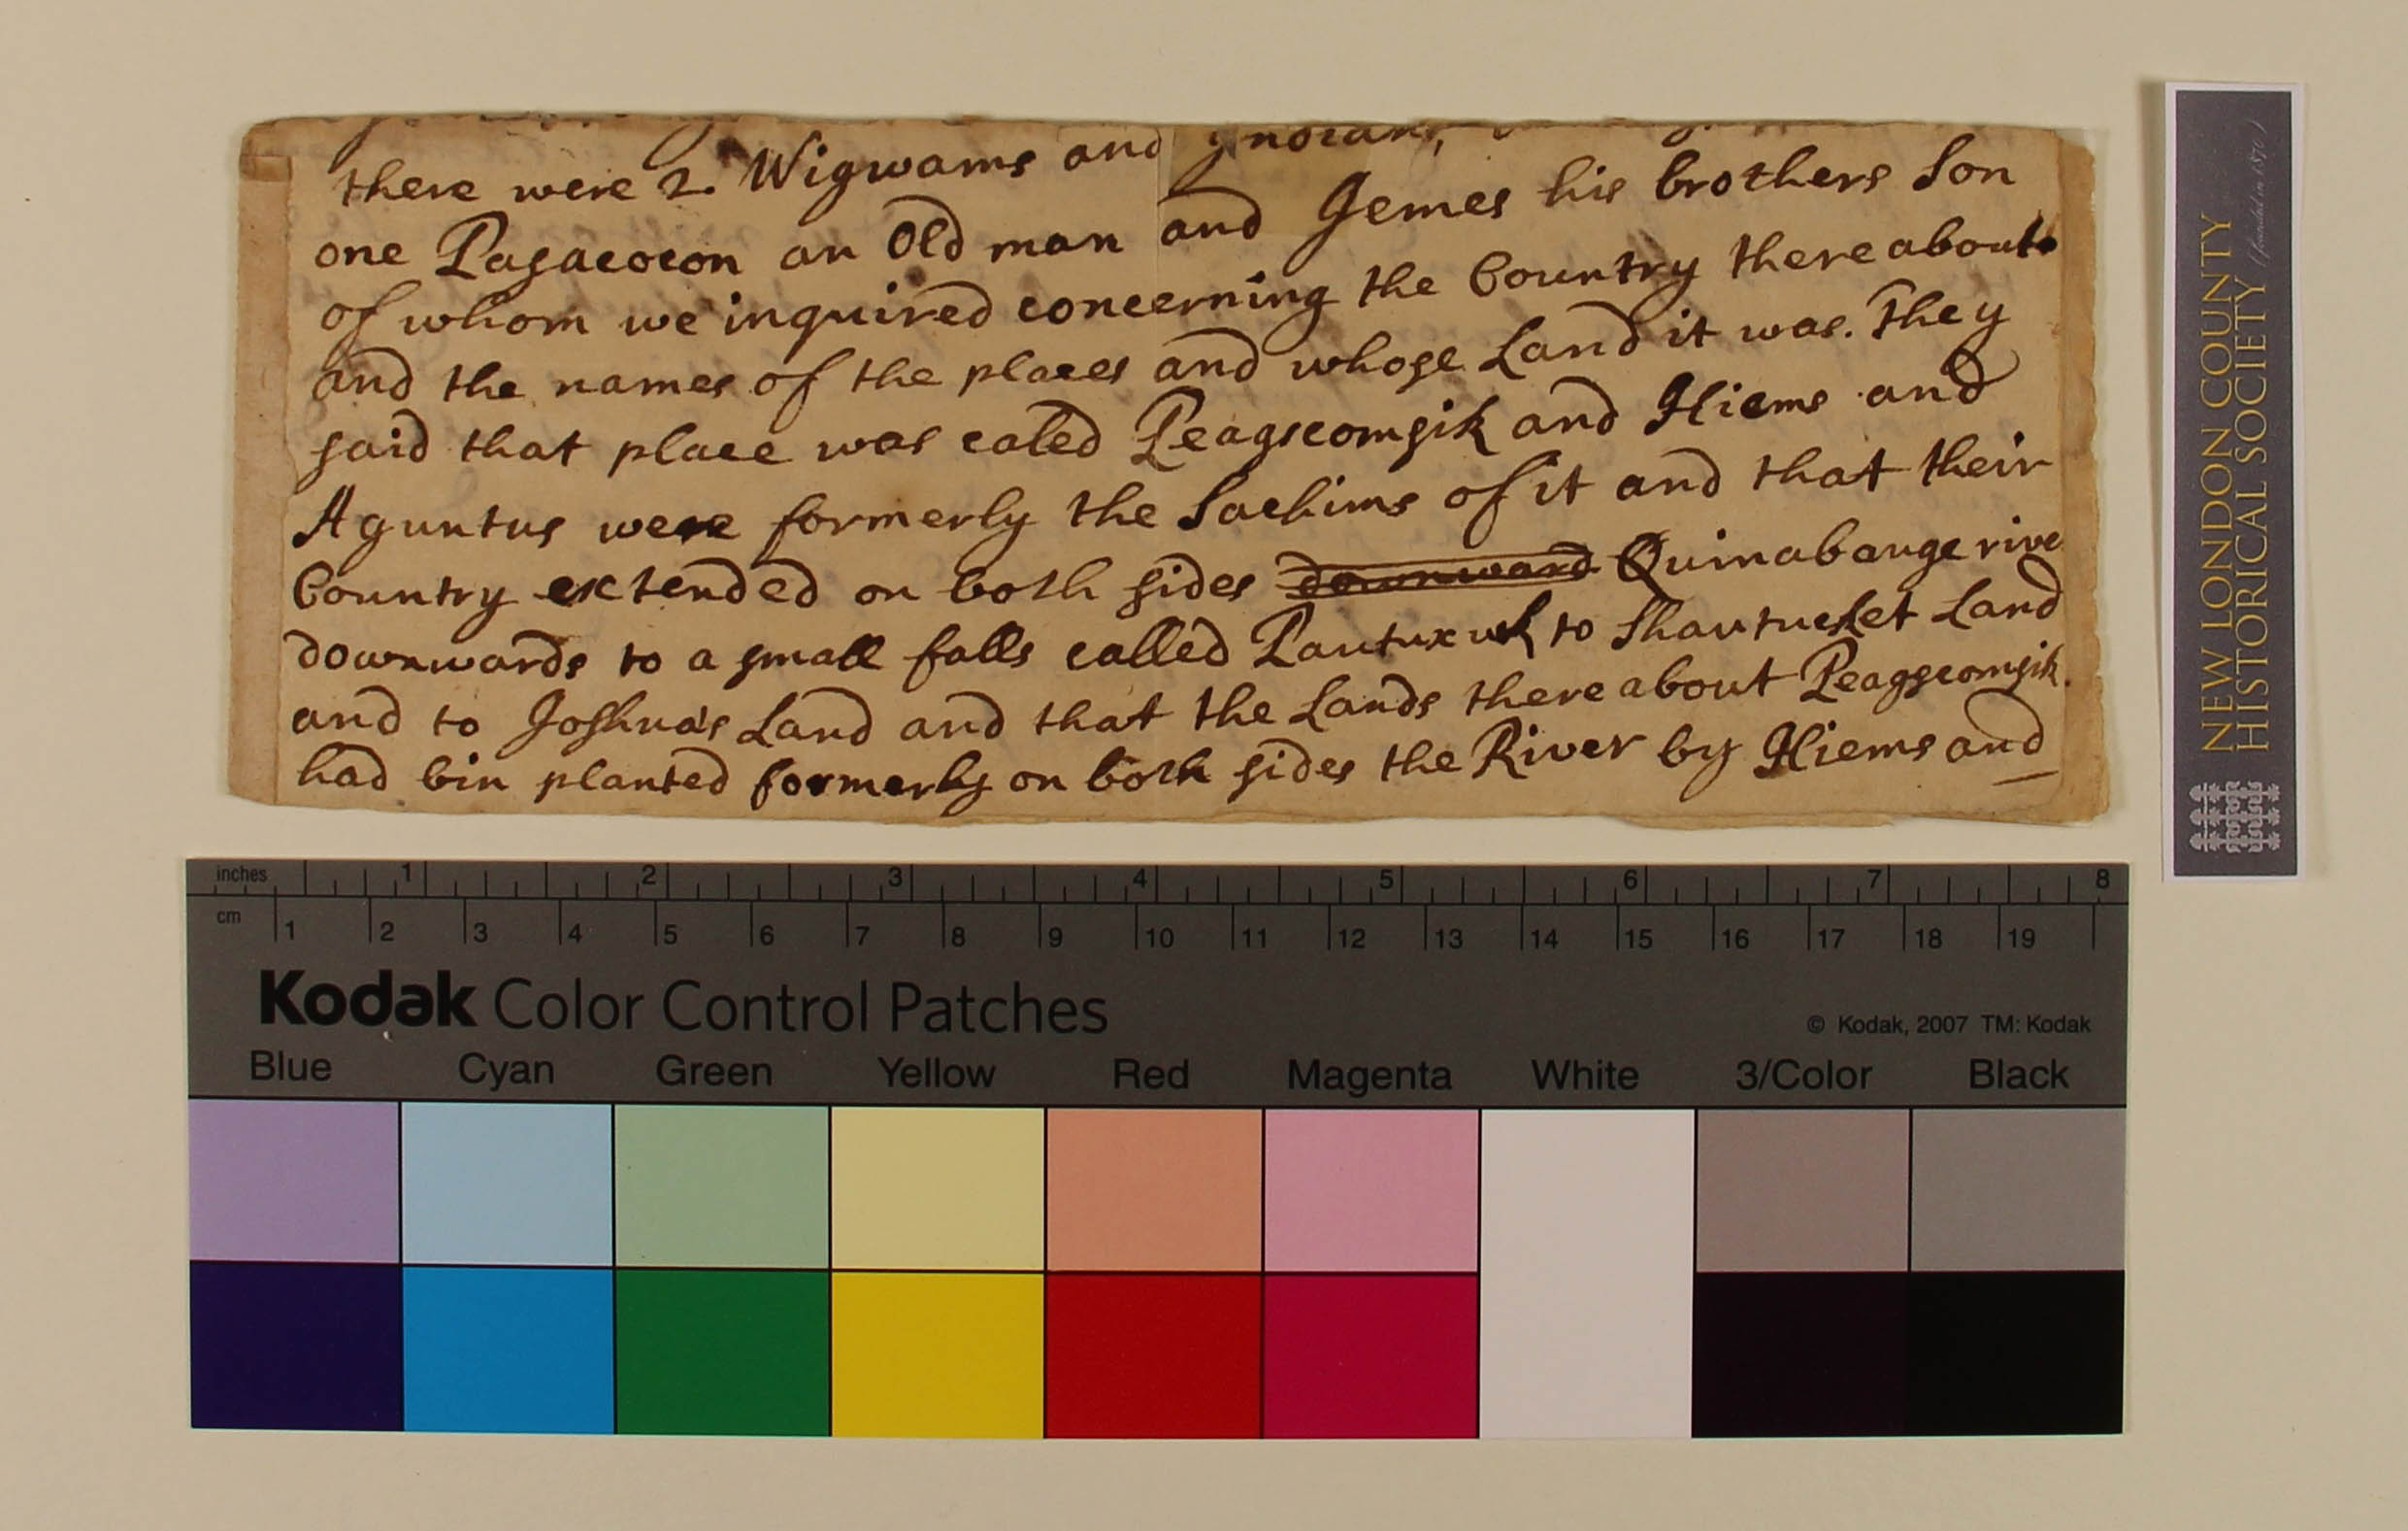 there were 2. Wigwams and Indians,
one Pagacocon an Old man and Jemes his brothers Son
of whom we inquired concerning the Country thereabouts
and the names of the places and whose Land it was. They
said that place was caled Peagscomsik and Hiems and
Aguntus were formerly the Sachims of it and that their
Country extended on both sides downward Quinabauge rive
downwards to a small falls called Pautuxuk to Shautucket Land
and to Joshua's Land and that the Lands there about Peagscomsik.
had bin planted formerly on both sides the River by Hiems and
NEW LONDON COUNTY
HISTORICAL SOCIETY (founded in 1870)
inches 1 2 3 4 5 6 7 8
cm 1 2 3 4 5 6 7 8 9 10 11 12 13 14 15 16 17 18 19
Kodak Color Control Patches
© Kodak, 2007 TM: Kodak
Blue Cyan Green Yellow Red Magenta White 3/Color Black